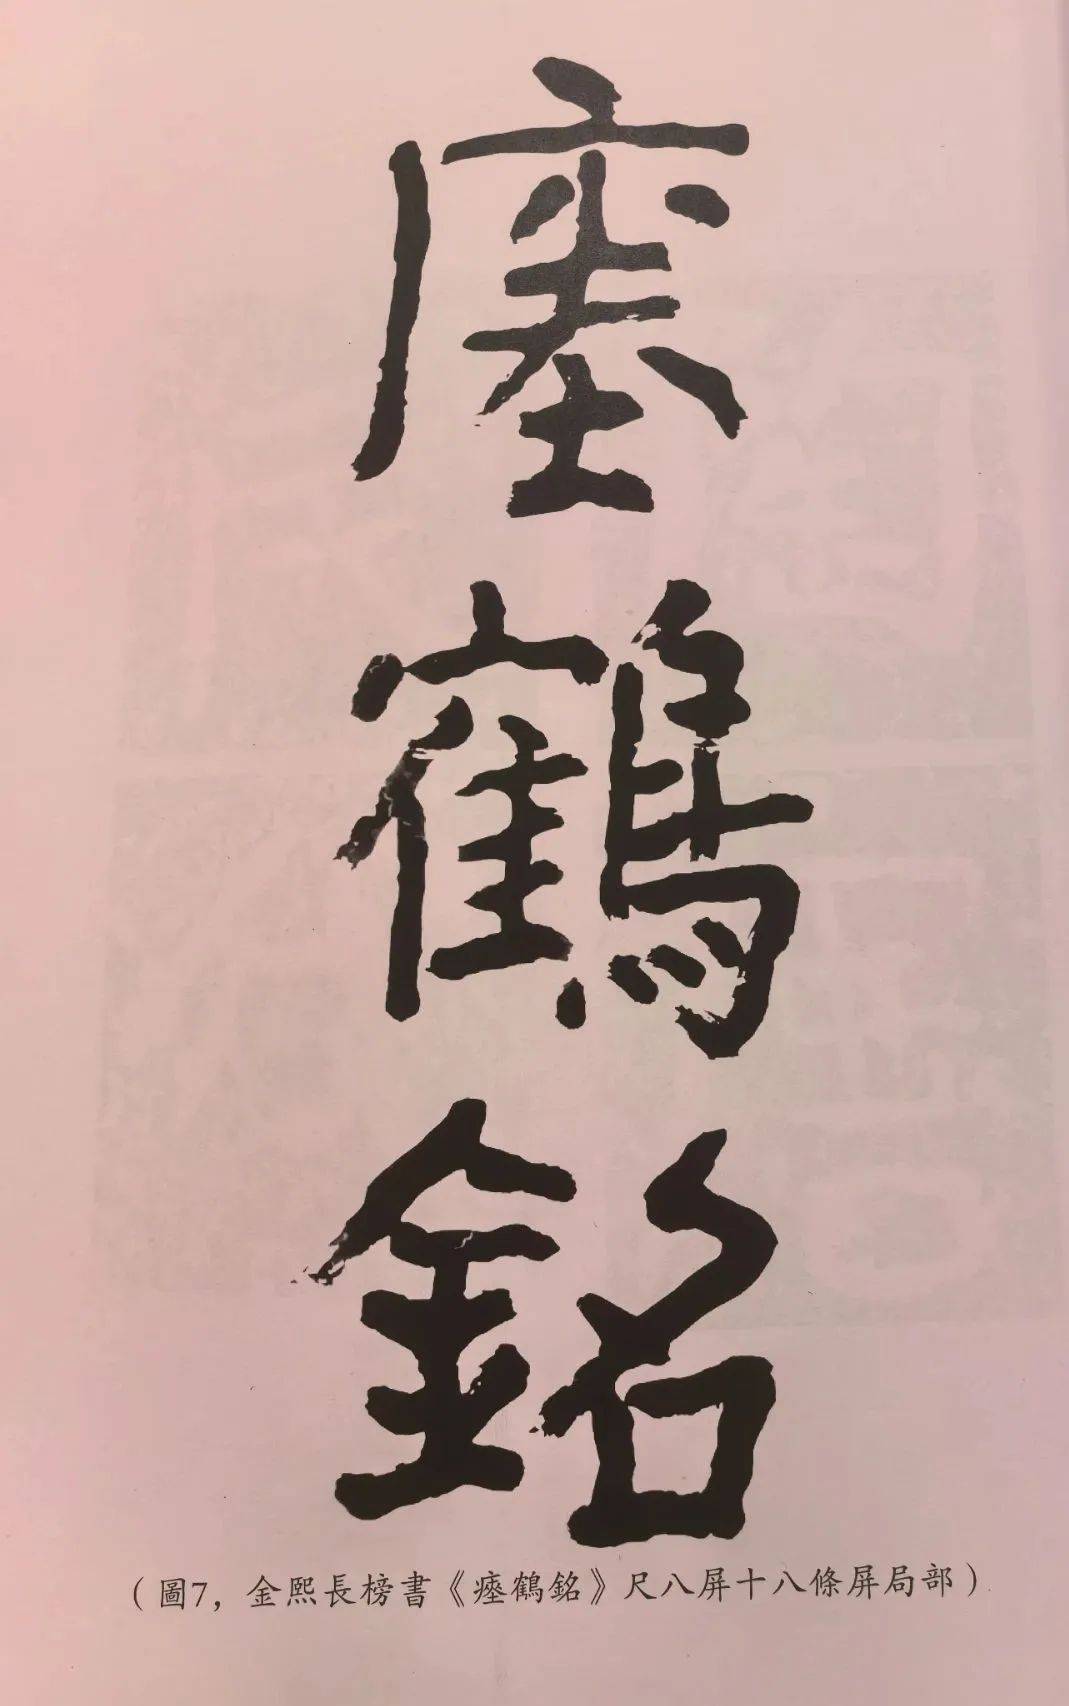 瘞鶴銘
(圖7，金熙長榜書《瘞鶴銘》尺八屏十八條屏局部)